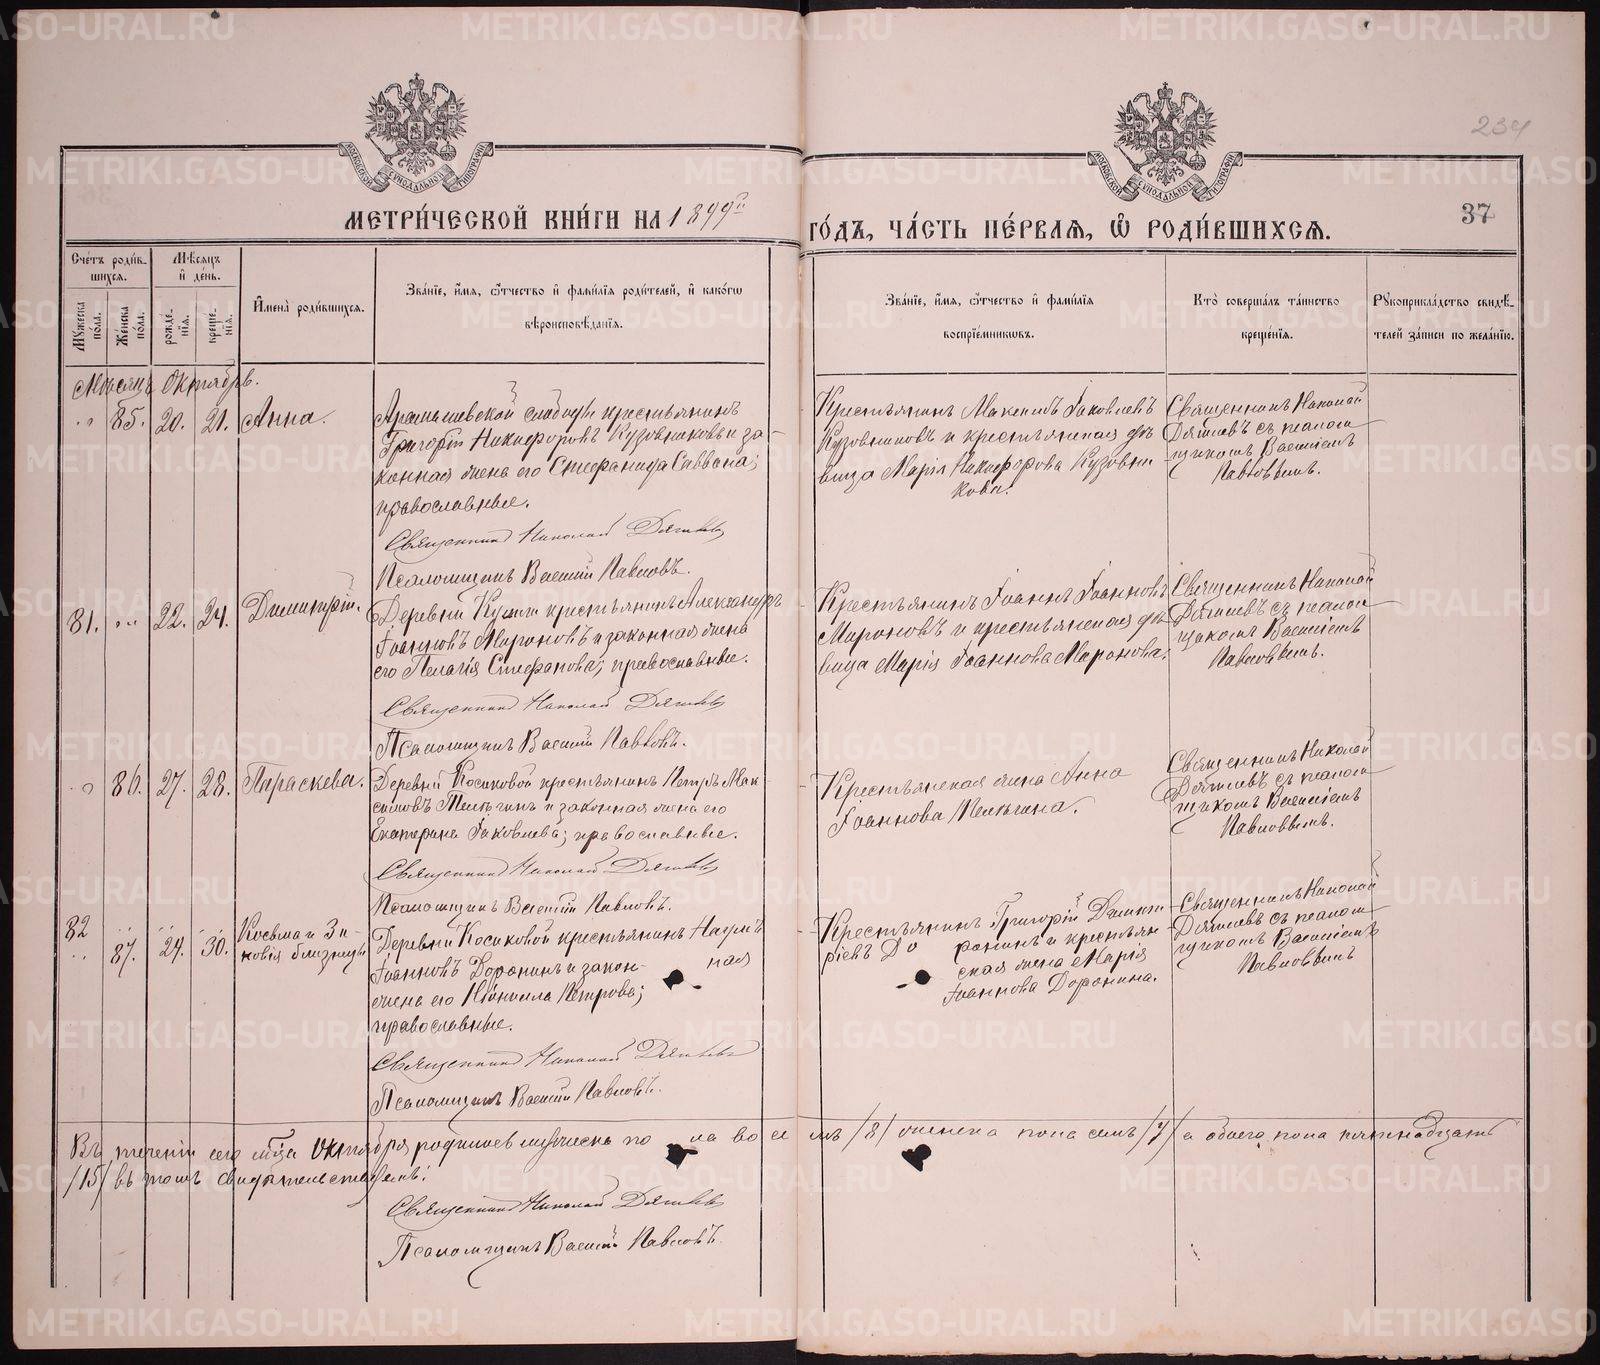 234
37
МЕТРИ́ЧЕСКОЙ КНИ́ГИ НА 1899й
ГО́ДЪ, ЧА́СТЬ ПЕ́РВАѦ, Ѽ РОДИ́ВШИХСѦ.
Сче́тъ роди́в-
шихсѧ.
Мꙋжеска
пола.
Же́нска
по́ла.
Мѣ́сѧцъ
и҆ де́нь.
рожде́-
нїѧ.
креще́-
нїѧ.
И҆мена̀ роди́вшихсѧ.
Зва́нїе, и҆́мѧ, ѻ҆́тчество и҆ фами́лїѧ роди́телей, и҆ како́гѡ
вѣроисповѣ́данїѧ.
Зва́нїе, и҆́мѧ, ѻ҆́тчество и҆ фами́лїѧ
воспрїе́мникѡвъ.
Кто̀ соверша́лъ та́инство
креще́нїѧ.
Рꙋкоприкла́дство свидѣ́-
телей за́писи по жела́нїю.
Мѣсяцъ Октябрь.
85. 20. 21. Анна.
Арамышевской слободы крестьянинъ
Григорій Никифоровъ Кузовниковъ и за-
конная жена его Стефанида Саввина;
православные.
Священникъ Николай Дягилевъ
Псаломщикъ Василій Павловъ.
Крестьянинъ Максимъ Іаковлевъ
Кузовниковъ и крестьянская дѣ-
вица Марія Никифорова Кузовни-
кова.
Священникъ Николай
Дягилевъ съ псалом-
щикомъ Василіемъ
Павловымъ.
81. 22. 24. Димитрій.
крестьянинъ Александръ
Іоанновъ Мироновъ и законная жена
его Пелагія Стефанова; православные.
Священникъ Николай Дягилевъ
Псаломщикъ Василій Павловъ.
Крестьянинъ Іоаннъ Іоанновъ
Мироновъ и крестьянская дѣ-
вица Марія Іоаннова Миронова.
Священникъ Николай
Дягилевъ съ псалом-
щикомъ Василіемъ
Павловымъ.
86. 27. 28. Параскева.
Деревни Косиковой крестьянинъ Петръ Мак-
симовъ Пелыгинъ и законная жена его
Екатерина Іаковлева; православные.
Священникъ Николай Дягилевъ
Псаломщикъ Василій Павловъ.
Крестьянская жена Анна
Іоаннова Пелыгина.
Священникъ Николай
Дягилевъ съ псалом-
щикомъ Василіемъ
Павловымъ.
82
87. 29. 30. Косьма и Зи-
новія близнецы
Деревни Косиковой крестьянинъ Наумъ
Іоанновъ Доронинъ и закон- ная
жена его Неонилла Петрова;
православные.
Священникъ Николай Дягилевъ
Псаломщикъ Василій Павловъ.
Крестьянинъ Григорій Димит-
ріевъ До ронинъ и крестьян-
ская жена Марія
Іоаннова Доронина.
Священникъ Николай
Дягилевъ съ псалом-
щикомъ Василіемъ
Павловымъ
Въ теченіи сего м-ца Октября родилось мужеска по ла восемь /8/ женска пола семь /7/ а обоего пола пятнадцать
/15/ въ томъ свидѣтельствуемъ:
Священникъ Николай Дягилевъ
Псаломщикъ Василій Павловъ.
METRIKI.GASO-URAL.RU